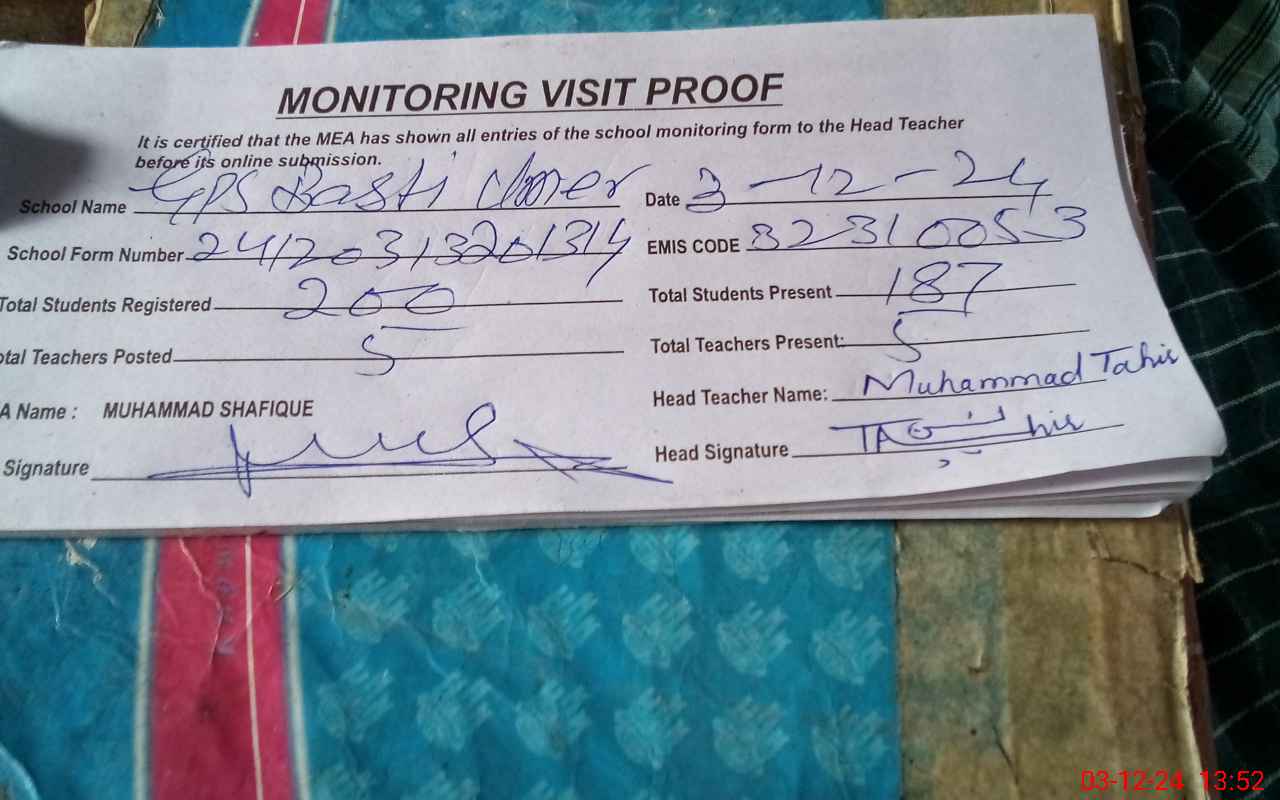 MONITORING VISIT PROOF
It is certified that the MEA has shown all entries of the school monitoring form to the Head Teacher
before its online submission.
School Name GPS Basti Date 3-12-24
School Form Number 24120313201314 EMIS CODE 32310053
Total Students Registered 200 Total Students Present 187
otal Teachers Posted 5 Total Teachers Present: 5
A Name : MUHAMMAD SHAFIQUE Head Teacher Name: Muhammad Tahir
Signature Head Signature TAhir
03-12-24 13:52